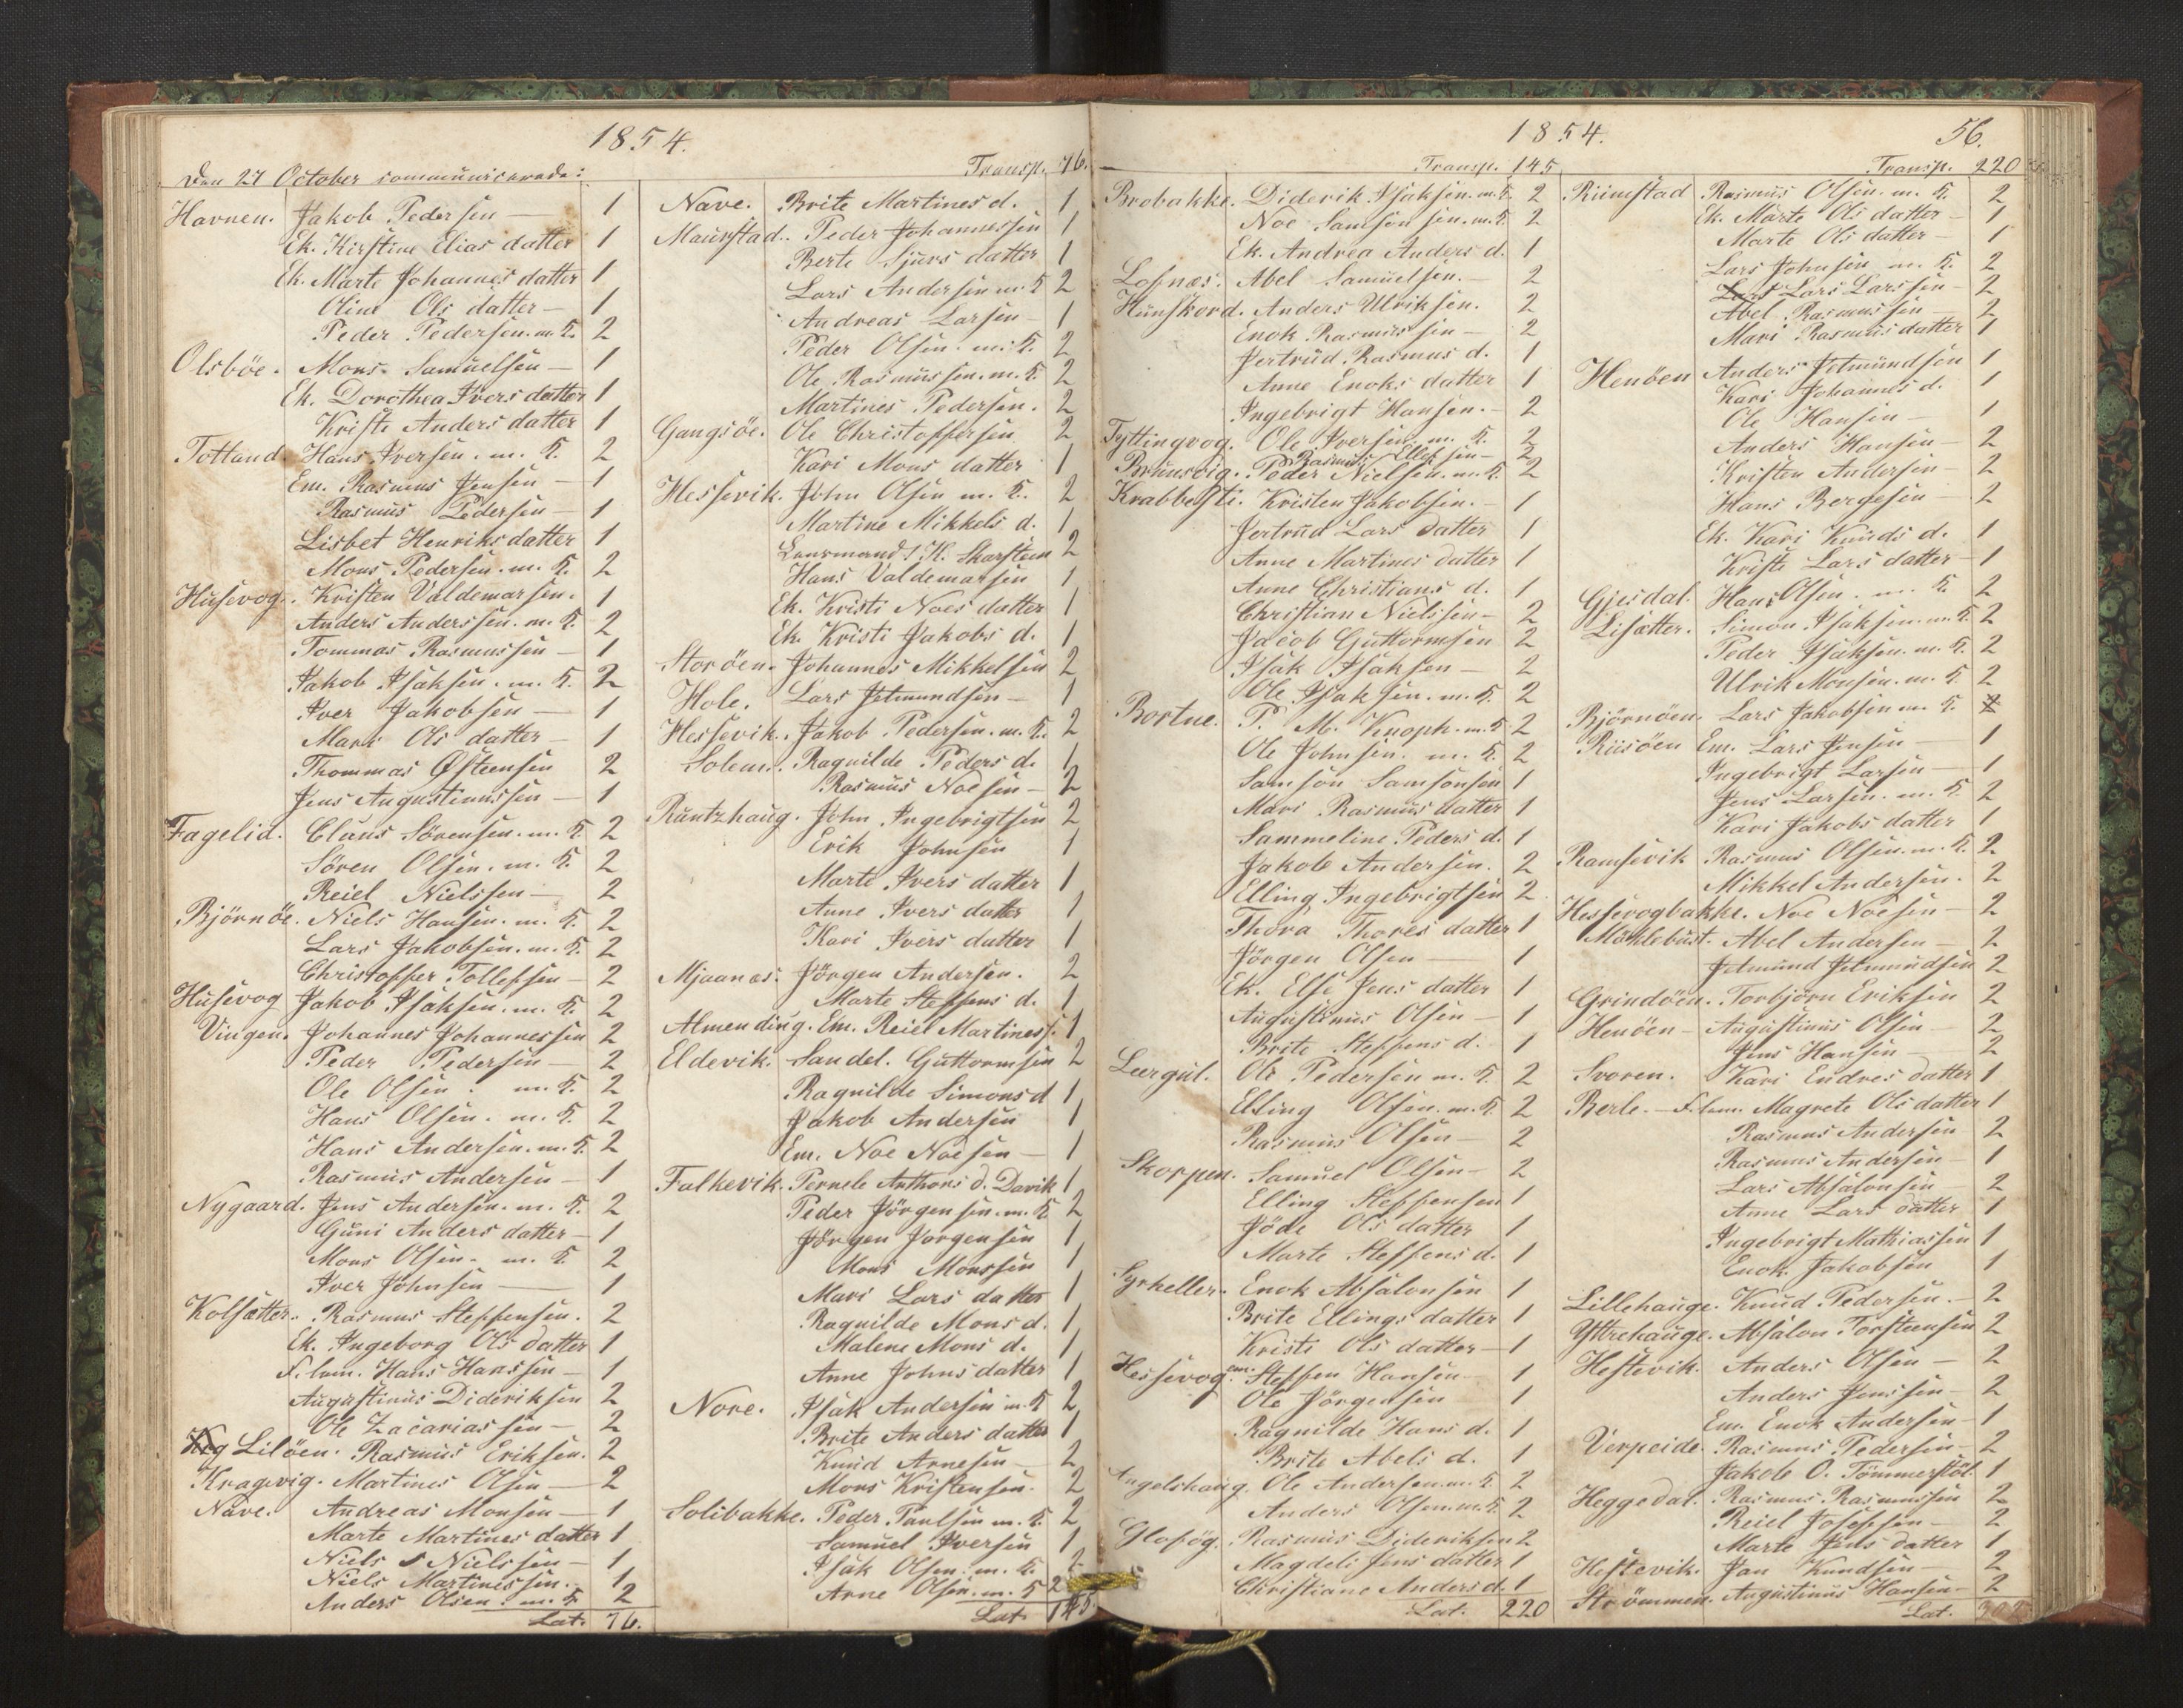 1854.
Den 27 October communicerede:
Havnen. Jakob Pedersen — 1
Ek. Kirstine Elias datter 1
Ek. Marte Johannes datter 1
Oline Ols datter — 1
Peder Pedersen. m. K. 2
Olsböe. Mons Samuelsen — 1
Ek. Dorothea Ivers datter 1
Kristi Anders datter 1
Totland. Hans Iversen. m. K. 2
Em. Rasmus Jensen — 1
Rasmus Pedersen — 1
Lisbet Henriks datter 1
Mons Pedersen. m. K. 2
Husevog. Kristen Valdemarsen. 1
Anders Anderssen. m. K. 2
Tommas Rasmussen — 1
Jakob Isaksen. m. K. 2
Iver Jakobsen — 1
Mari Ols datter — 1
Thommas Østeensen 2
Jens Augustinussen — 1
Fagelid. Claus Sörensen. m. K. 2
Sören Olsen. m. K. 2
Reiel Nielssen — 2
Björnöe. Niels Hansen. m. K. 2
Lars Jakobsen. m. K. 2
Christoffer Tollefsen — 2
Husevog Jakob Isaksen. m. K. 2
Vingen. Johannes Johannessen 2
Peder Pedersen — 2
Ole Olsen. m. K. 2
Hans Olsen. m. K. 2
Hans Andersen. m. K. 2
Rasmus Andersen — 1
Nygaard. Jens Andersen. m. K. 2
Guni Anders datter — 1
Mons Olsen. m. K. 2
Iver Johnsen — 1
Kolsætter. Rasmus Steffensen. 2
Ek. Ingeborg Ols datter 1
F. lem. Hans Hanssen — 1
Augustinus Dideriksen 2
Ole Zacariassen — 2
Lilöen. Rasmus Eriksen. 2
Kragevig. Martines Olsen — 2
Nave. Andreas Monsen — 1
Marte Martines datter 1
Niels Nielssen — 1
Niels Martinessen. 1
Anders Olsen. m. K. 2
Lat. 76.
Transp. 76.
Nave. Brite Martines d. 1
Maurstad. Peder Johannessen 1
Berte Sjurs datter 1
Lars Andersen m. K 2
Andreas Larsen — 1
Peder Olsen. m. K. 2
Ole Rasmussen. m. K. 2
Martines Pedersen. 2
Gangsöe. Ole Christoffersen 2
Kari Mons datter 1
Hessevik. John Olsen m. K. 2
Martine Mikkels d. 1
Lensmand H. Skarsteen 2
Hans Valdemarsen 1
Ek. Kristi Noes datter 1
Ek. Kristi Jakobs d. 1
Storöen. Johannes Mikkelsen 2
Hole. Lars Jetmundsen — 1
Hessevik. Jakob Pedersen. m. K. 2
Solem. Ragnilde Peders d. 1
Rasmus Noesen — 2
Runtzhaug. John Ingebrigtsen 2
Erik Johnsen 1
Marte Ivers datter 1
Anne Ivers datter 1
Kari Ivers datter 1
Mjaanæs. Jörgen Andersen. 2
Marte Steffens d. 1
Almending. Em. Reiel Martines. 1
Eldevik. Sandel. Guttormsen 2
Ragnilde Simons d 1
Jakob Andersen 1
Em. Noe Noesen — 1
Falkevik. Pernele Anthons d. Davik 1
Peder Jörgensen. m. K 2
Jörgen Jörgensen 1
Mons Monssen 1
Mari Lars datter 1
Ragnilde Mons d. 1
Malene Mons d. 1
Anne Johns datter 1
Nore. Isak Andersen m. K 2
Brite Anders datter 1
Knud Arnesen — 2
Mons Kristensen. 2
Solibakke. Peder Paulsen m. K. 2
Samuel Iversen 1
Isak Olsen. m. K. 2
Arne Olsen. m. K 2
Lat. 145.
1854.
56.
Transp. 145
Brobakke. Diderik Isaksen. m. K. 2
Noe Samsonsen. m. K. 2
Ek. Andrea Anders d. 1
Lofnæs. Abel Samuelsen. — 2
Hunskord. Anders Ulriksen. 2
Enok Rasmussen — 2
Jertrud Rasmus d. 1
Anne Enoks datter 1
Ingebrigt Hansen. — 2
Tyttingvog. Ole Iversen. m. K. 2
Rasmus Ellefsen — 2
Brunsvig. Peder Nielsen. m. K. 2
Krabbesti. Kristen Jakobsen. — 1
Jertrud Lars datter 1
Anne Martines datter 1
Anne Christians d. 1
Christian Nielssen — 2
Jacob Guttormsen 2
Isak Isaksen — 2
Ole Isaksen. m. K. 2
Bortne. P. M. Knoph. m. K 2
Ole Johnsen. m. K. 2
Samson Samsonsen 1
Mari Rasmus datter 1
Sammeline Peders d. 1
Jakob Andersen. 2
Elling Ingebrigtsen 2
Thora Thores datter 1
Jörgen Olsen — 1
Ek. Else Jens datter 1
Augustinus Olsen — 1
Brite Steffens d. 1
Leergul. Ole Pedersen m. K. 2
Elling Olsen. m. K. 2
Rasmus Olsen — 2
Skorpen. Samuel Olsen — 2
Elling Steffensen 1
Jöde Ols datter 1
Marte Steffens d. 1
Syrheller. Enok Absalonsen 1
Brite Ellings datter 1
Kristi Ols datter — 1
Hessevog. em. Steffen Hansen — 1
Ole Jörgensen 1
Ragnilde Hans d. 1
Brite Abels d. 1
Angelshaug. Ole Andersen. m. K. 2
Anders Olsen. m. K. 2
Glofög. Rasmus Dideriksen 2
Magdeli Jens datter 1
Christiane Anders d. 1
Lat. 220
Transp. 220
Rimstad Rasmus Olsen. m. K. 2
Ek. Marte Ols datter — 1
Marte Ols datter — 1
Lars Johnsen m. K. 2
Lars Larssen — 2
Abel Rasmussen — 2
Mari Rasmus datter 1
Henöen Anders Jetmundsen 1
Kari Johannes d. 1
Ole Hansen — 1
Anders Hansen — 2
Kristen Andersen — 2
Hans Bergesen — 2
Ek. Kari Knuds d. 1
Kristi Lars datter — 1
Gjesdal. Hans Olsen. m. K. 2
Lisætter. Simon Isaksen. m. K. 2
Peder Isaksen. m. K. 2
Ulrik Monsen. m. K. 2
Björnöen. Lars Jakobsen m. K. 2
Risöen Em. Lars Jensen — 1
Ingebrigt Larsen — 1
Jens Larsen. m. K. 2
Kari Jakobs datter 1
Ramsevik Rasmus Olsen. m. K. 2
Mikkel Andersen. 2
Hessevogbakke. Noe Noesen — 2
Möhlebust. Abel Andersen — 2
Jetmund Jetmundsen 2
Grindöen. Torbjörn Eriksen 2
Henöen — Augustinus Olsen — 2
Jens Hansen — 2
Svoren. Kari Endres datter 1
Berle. — F. lem. Magrete Ols datter 1
Rasmus Andersen 2
Rasmus Andersen — 1
Lars Absalonsen — 2
Anne Lars datter 1
Ingebrigt Mathiassen 1
Enok Jakobsen 1
Lillehauge. Knud Pedersen. — 2
Yttrehauge. Absalon Torsteensen 2
Hestevik. Anders Olsen — 2
Anders Jenssen — 2
Em. Enok Andersen — 1
Verpeide. Rasmus Pedersen — 2
Jakob O. Tömmerstöl 1
Heggedal. Rasmus Rasmussen 2
Reiel Josefsen — 2
Marte Jens datter 1
Hestevik. Jan Knudsen — 2
Strömmen. Augustinus Hansen — 2
Lat.